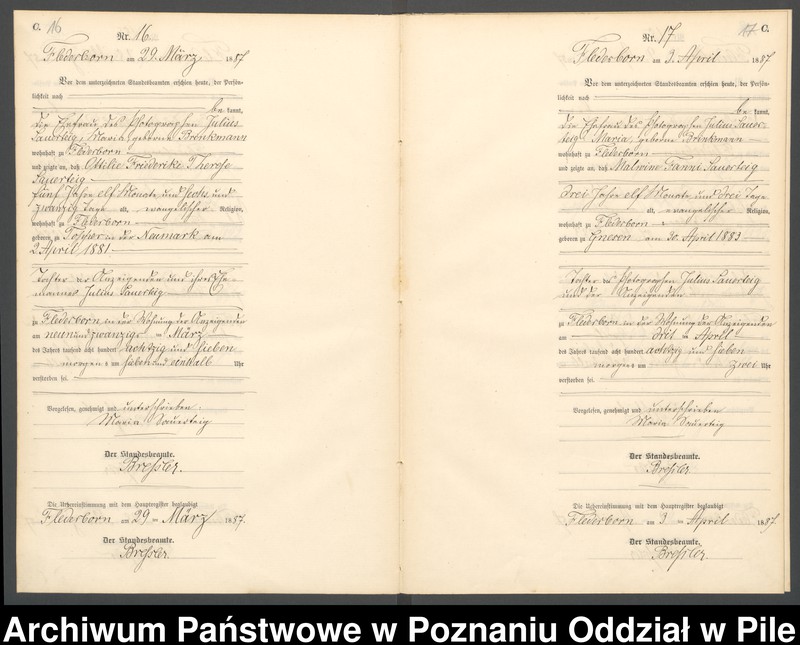 C. 16
Nr. 16.
Flederborn am 29. März 1887
Vor dem unterzeichneten Standesbeamten erschien heute, der Persön-
lichkeit nach
be kannt,
die Ehefrau des Photographen Julius
Sauerteig, Maria geborene Brinkmann
wohnhaft zu Flederborn
und zeigte an, daß Ottilie Friederike Therese
Sauerteig
fünf Jahre elf Monate und sechs und
zwanzig Tage alt, evangelischer Religion,
wohnhaft zu Flederborn
geboren zu in der Neumark am
2 April 1881
Tochter der Anzeigenden und ihres Ehe-
mannes Julius Sauerteig
zu Flederborn in der Wohnung der Anzeigenden
am neun und zwanzig März
des Jahres tausend acht hundert achtzig und sieben
morgens um sieben und einhalb Uhr
verstorben sei.
Vorgelesen, genehmigt und unterschrieben
Maria Sauerteig
Der Standesbeamte.
Bressler.
Die Uebereinstimmung mit dem Hauptregister beglaubigt
Flederborn am 29 ten März 1887.
Der Standesbeamte.
Bressler.
17 C.
Nr. 17
Flederborn am 3. April 1887
Vor dem unterzeichneten Standesbeamten erschien heute, der Persön-
lichkeit nach
be kannt,
die Ehefrau des Photographen Julius Sauer-
teig Maria, geborene Brinkmann
wohnhaft zu Flederborn
und zeigte an, daß Malwine Fanni Sauerteig
drei Jahre elf Monate und drei Tage
alt, evangelischer Religion,
wohnhaft zu Flederborn
geboren zu Gnesen am 30. April 1883
Tochter des Photographen Julius Sauerteig
und der Anzeigenden
zu Flederborn in der Wohnung der Anzeigenden
am drit ten April
des Jahres tausend acht hundert achtzig und sieben
morgens um zwei Uhr
verstorben sei.
Vorgelesen, genehmigt und unterschrieben
Maria Sauerteig
Der Standesbeamte.
Bressler
Die Uebereinstimmung mit dem Hauptregister beglaubigt
Flederborn am 3 ten April 1887
Der Standesbeamte.
Bressler.
Archiwum Państwowe w Poznaniu Oddział w Pile